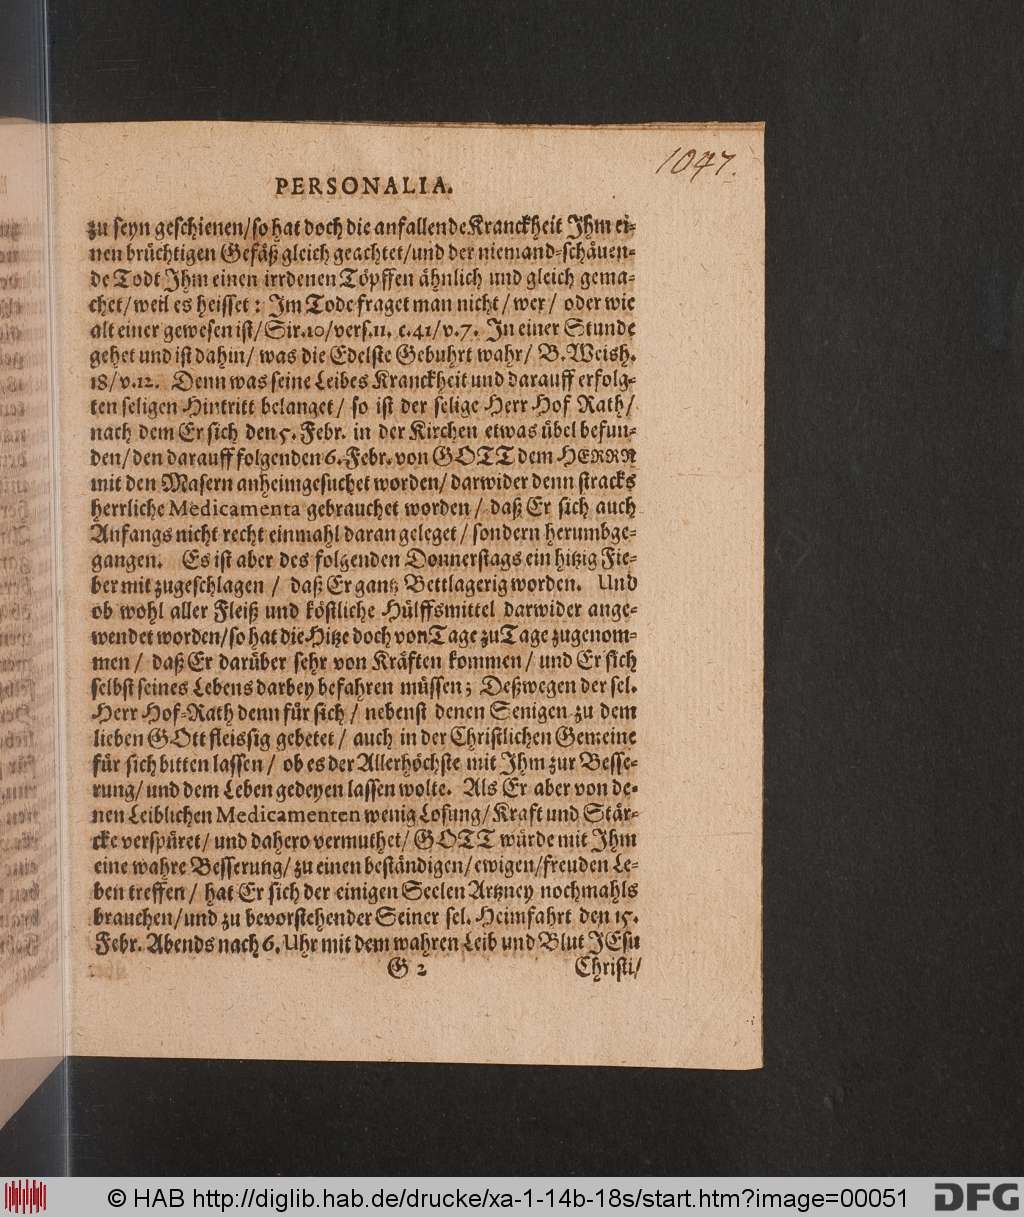 1047.
PERSONALIA.
zu seyn geschienen/so hat doch die anfallende Kranckheit Ihm ei-
nen brüchtigen Gefäß gleich geachtet/und der niemand-schäuen-
de Todt Ihm einen irrdenen Töpffen ähnlich und gleich gema-
chet/weil es heisset: Im Tode fraget man nicht/wer/ oder wie
alt einer gewesen ist/Sir.10/vers.11. c.41/v.7. In einer Stunde
gehet und ist dahin/ was die Edelste Gebuhrt wahr/ B.Weish.
18/v.12. Denn was seine Leibes Kranckheit und darauff erfolg-
ten seligen Hintritt belanget/ so ist der selige Herr Hof Rath/
nach dem Er sich den 5. Febr. in der Kirchen etwas übel befun-
den/den darauff folgenden 6.Febr. von GOTT dem HERRN
mit den Masern anheimgesuchet worden/ darwider denn stracks
herrliche Medicamenta gebrauchet worden/ daß Er sich auch
Anfangs nicht recht einmahl daran geleget/ sondern herumbge-
gangen. Es ist aber des folgenden Donnerstags ein hitzig Fie-
ber mit zugeschlagen/ daß Er gantz Bettlagerig worden. Und
ob wohl aller Fleiß und köstliche Hülffsmittel darwider ange-
wendet worden/so hat die Hitze doch von Tage zu Tage zugenom-
men/ daß Er darüber sehr von Kräften kommen/ und Er sich
selbst seines Lebens darbey befahren müssen; Deßwegen der sel.
Herr Hof-Rath denn für sich/ nebenst denen Senigen zu dem
lieben GOtt fleissig gebetet/ auch in der Christlichen Gemeine
für sich bitten lassen/ ob es der Allerhöchste mit Ihm zur Besse-
rung/ und dem Leben gedeyen lassen wolte. Als Er aber von de-
nen Leiblichen Medicamenten wenig Losung/Kraft und Stär-
cke verspüret/ und dahero vermuthet/ GOTT würde mit Ihm
eine wahre Besserung/zu einen beständigen/ewigen/freuden Le-
ben treffen/ hat Er sich der einigen Seelen Artzney nochmahls
brauchen/und zu bevorstehender Seiner sel. Heimfahrt den 15.
Febr. Abends nach 6. Uhr mit dem wahren Leib und Blut JEsu
G 2 Christi/
© HAB http://diglib.hab.de/drucke/xa-1-14b-18s/start.htm?image=00051
DFG